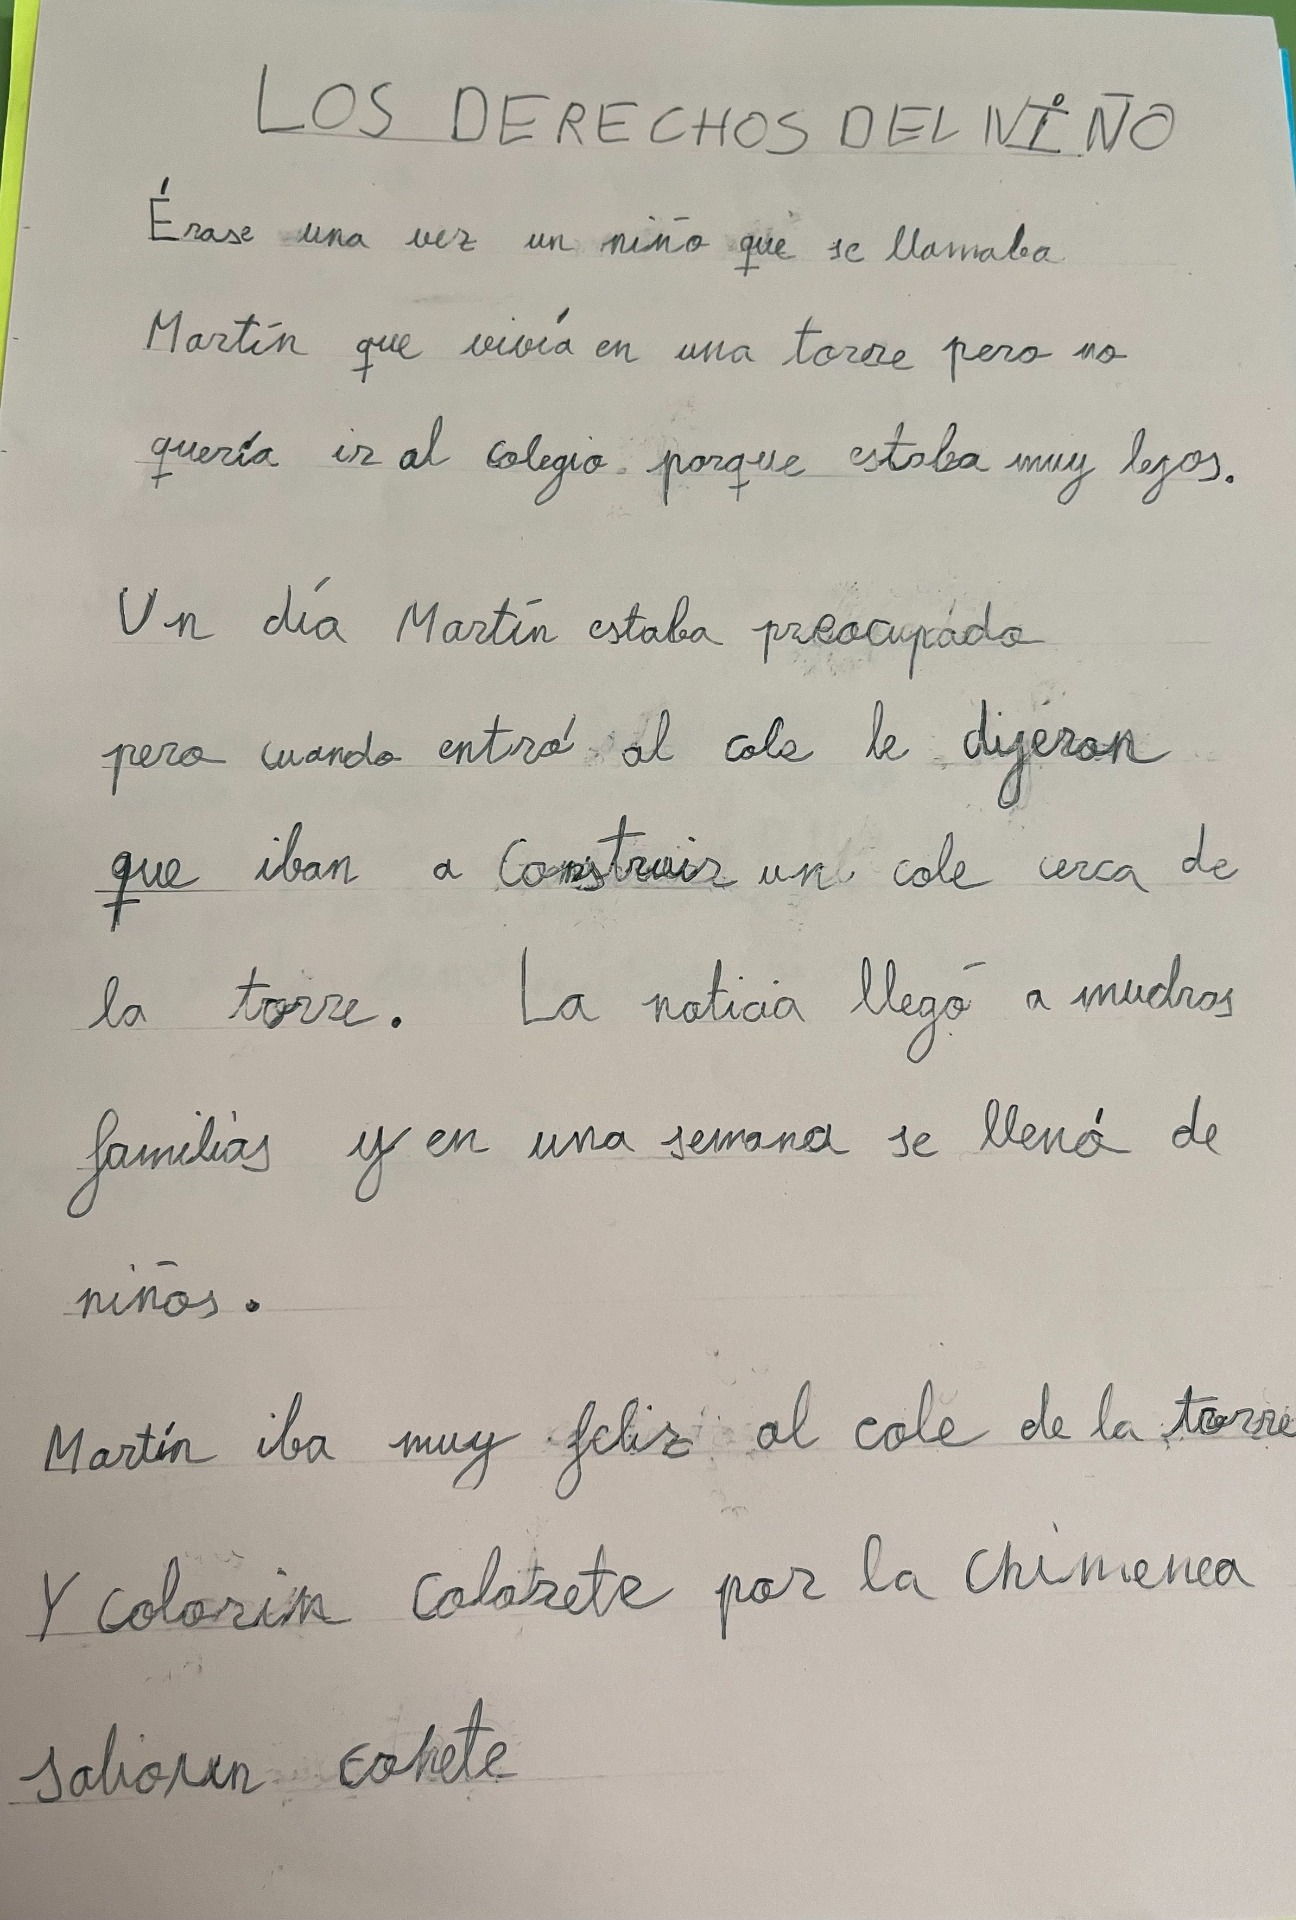 LOS DERECHOS DEL NIÑO
Érase una vez un niño que se llamaba
Martín que vivía en una torre pero no
quería ir al colegio porque estaba muy lejos.
Un día Martín estaba preocupado
pero cuando entró al cole le dijeron
que iban a construir un cole cerca de
la torre. La noticia llegó a muchas
familias y en una semana se llenó de
niños.
Martín iba muy feliz al cole de la torre
Y colorin colorete por la chimenea
salio un cohete